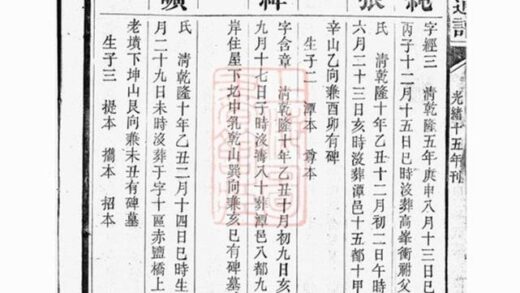 光緒十五年刊
字經三 清乾隆五年庚申八月十三日巳
丙子十二月十五日巳時沒葬高峯衝祔父
張
氏 清乾隆十年乙丑十二月初二日午時
六月二十三日亥時沒葬潭邑十五都十甲
辛山乙向兼酉卯有碑
生子二 潭本 尊本
字含章 清乾隆十年乙丑十月初九日亥
九月十七日子時沒壽八十葬潭邑八都九
岸住屋下圯中乳乾山巽向兼亥巳有碑墓
氏 清乾隆十年乙丑二月十四日巳時生
月二十九日未時沒葬于字十區赤鹽橋上
老墳下坤山艮向兼未丑有碑墓
生子三 禔本 攜本 招本